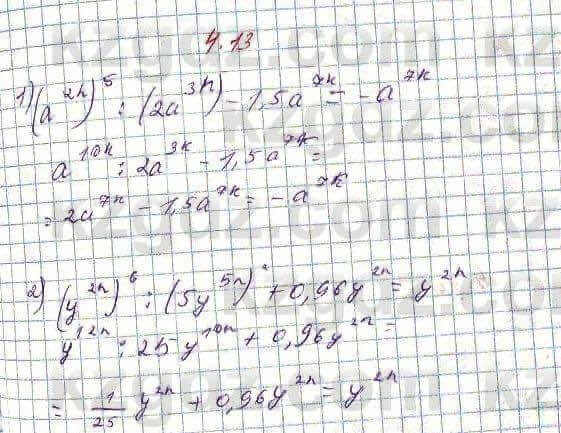 4.13
1) (a^{2n})^5 : (2a^{3n}) - 1,5a^{7n} = -a^{7n}
a^{10n} : 2a^{3n} - 1,5a^{7n} =
= 2a^{7n} - 1,5a^{7n} = -a^{7n}
2) (y^{2n})^6 : (5y^{5n})^2 + 0,96y^{2n} = y^{2n}
y^{12n} : 25y^{10n} + 0,96y^{2n} =
= \frac{1}{25} y^{2n} + 0,96y^{2n} = y^{2n}